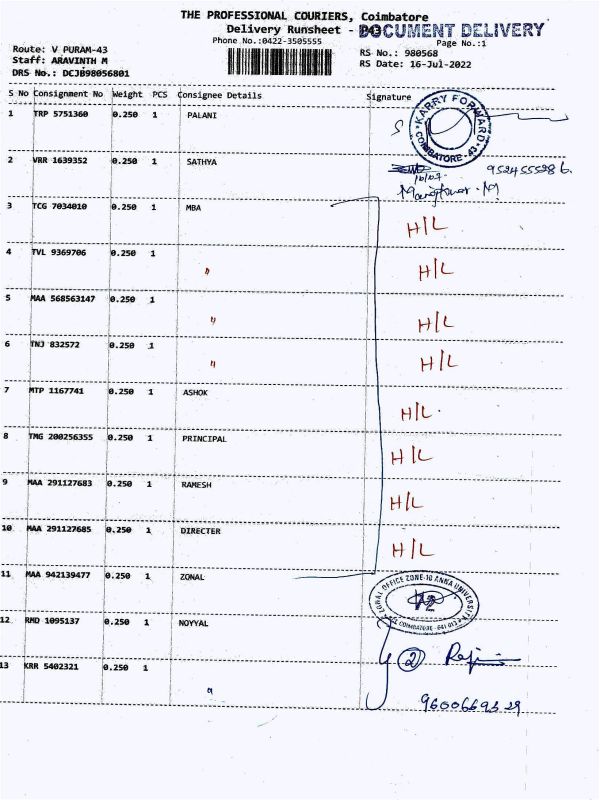 THE PROFESSIONAL COURIERS, Coimbatore
Delivery Runsheet - DOCUMENT DELIVERY
Phone No.:0422-3505555
Page No.:1
Route: V PURAM-43
Staff: ARAVINTH M
DRS No.: DCJB98056801
RS No.: 980568
RS Date: 16-Jul-2022
S No Consignment No Weight PCS Consignee Details Signature
1 TRP 5751360 0.250 1 PALANI
KARRY FORWARD
COIMBATORE - 43
2 VRR 1639352 0.250 1 SATHYA
9524555286.
3 TCG 7034010 0.250 1 MBA H/L
4 TVL 9369706 0.250 1 " H/L
5 MAA 568563147 0.250 1 " H/L
6 TNJ 832572 0.250 1 " H/L
7 MTP 1167741 0.250 1 ASHOK H/L.
8 TMG 200256355 0.250 1 PRINCIPAL H/L
9 MAA 291127683 0.250 1 RAMESH H/L
10 MAA 291127685 0.250 1 DIRECTER H/L
11 MAA 942139477 0.250 1 ZONAL
ZONAL OFFICE ZONE-10 ANNA UNIVERSITY
COIMBATORE - 641 013
12 RMD 1095137 0.250 1 NOYYAL
2
13 KRR 5402321 0.250 1 "
9600669329